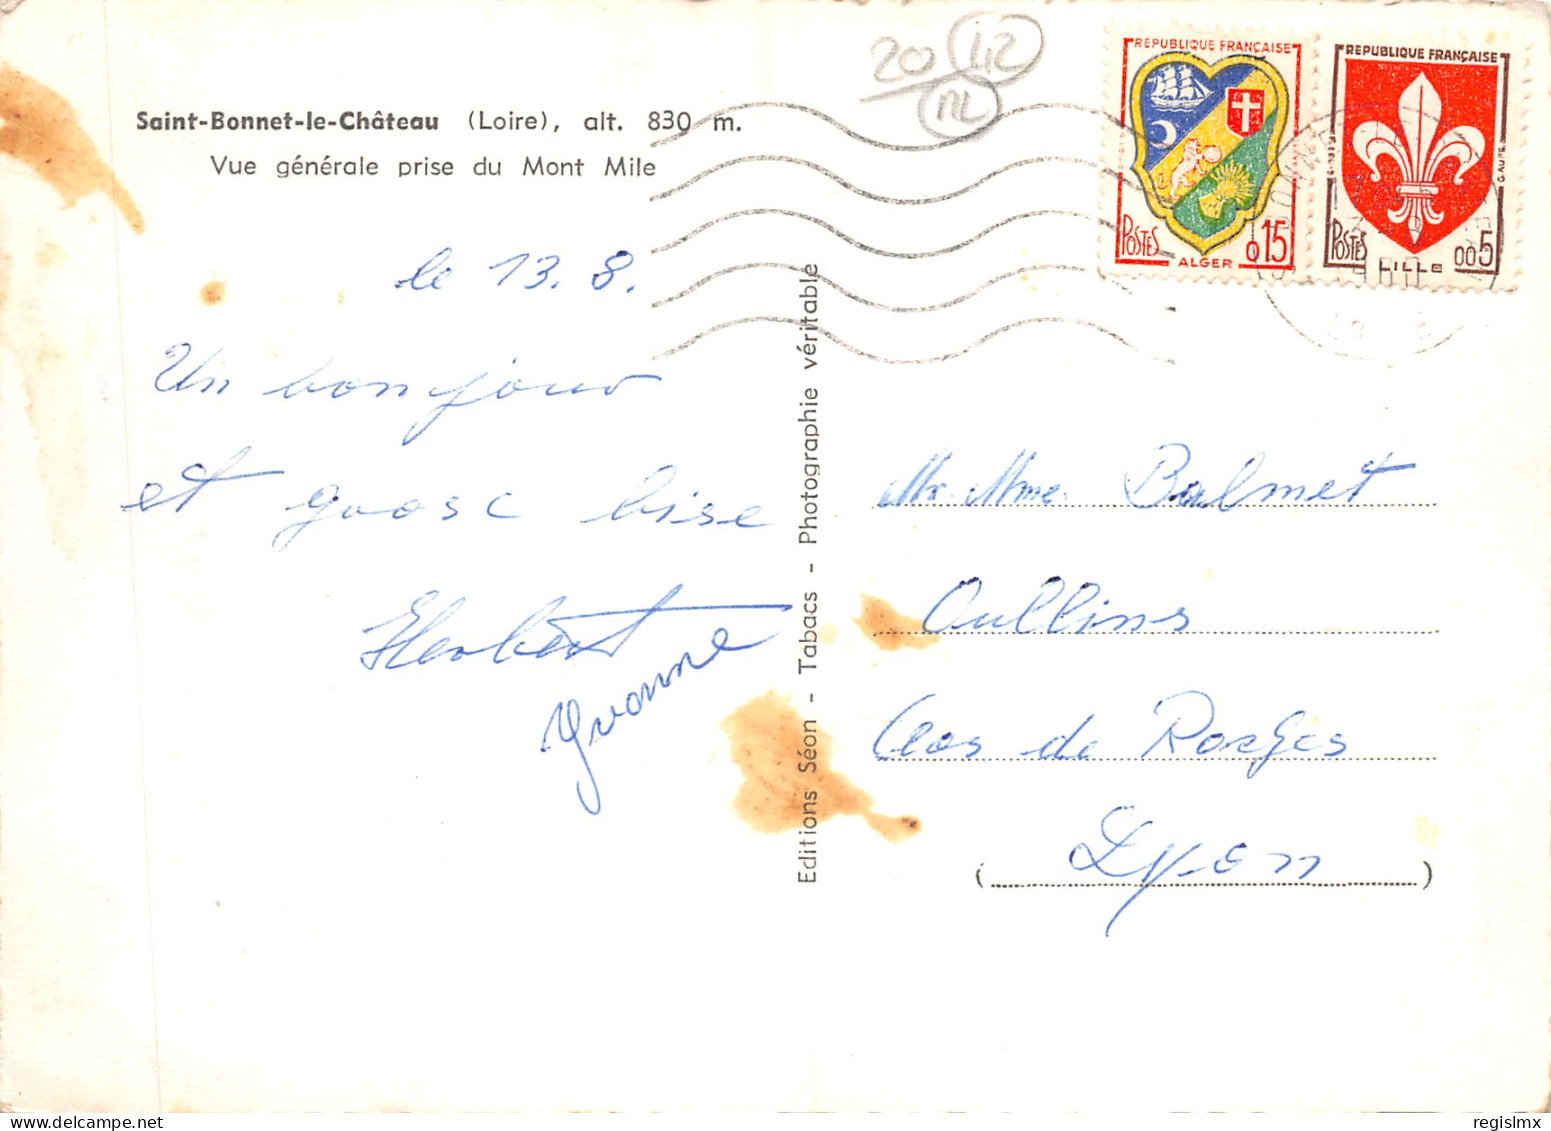 20 42
NL
Saint-Bonnet-le-Château (Loire), alt. 830 m.
Vue générale prise du Mont Mile
RÉPUBLIQUE FRANÇAISE
POSTES
ALGER
0,15
RÉPUBLIQUE FRANÇAISE
POSTES
LILLE
0,05
G. AUFES
le 13. 8.
Un bonjour
et grosse bise
Herbert
Yvonne
Editions Séon - Tabacs - Photographie véritable
Mr Mme Balmet
Oullins
Clos de Rosges
(Lyon)
regislmx